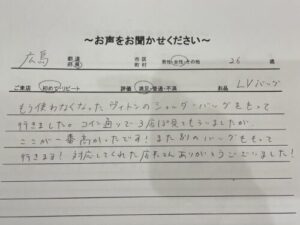 ～お声をお聞かせください～
広島 都道府県 市区町村 男性・女性・その他 26 歳
ご来店 初めて・リピート 評価 満足・普通・不満 お品 LVバッグ
もう使わなくなったヴィトンのショルダーバッグをもって
行きました。コイン通りで3店ほど見てもらいましたが、
ここが一番高かったです!また別のバッグをもって
行きます!対応してくれた店員さんありがとうございました!